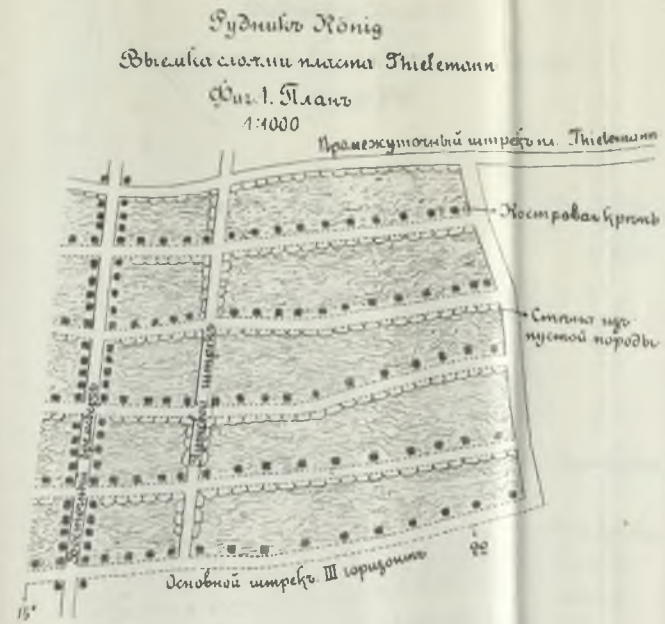 Рудникъ König
Выемка слоями пласта Thielemann
Фиг. 1. Планъ
1:1000
Промежуточный штрекъ пл. Thielemann
Костровая крѣпь
Стѣнка изъ
пустой породы
штрекъ
Основной штрекъ III горизонтъ
22
15°